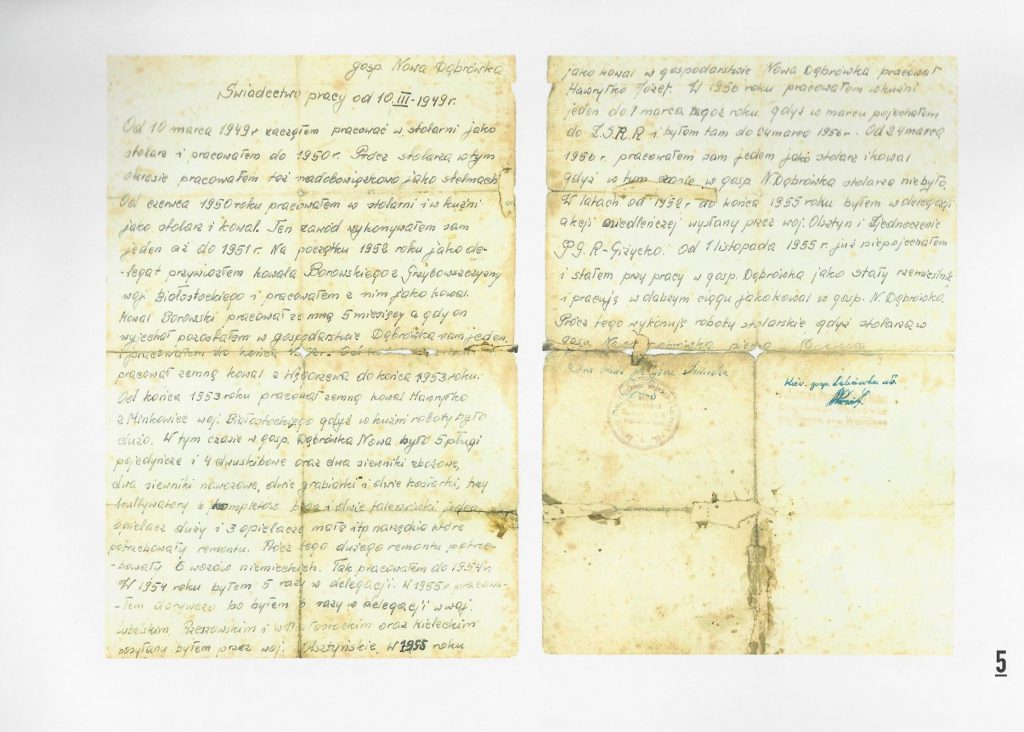 gosp. Nowa Dąbrówka
Świadectwo pracy od 10.III-1949r.
Od 10 marca 1949r zacząłem pracować w stolarni jako
stolarz i pracowałem do 1950r. Prócz stolarza w tym
okresie pracowałem też nadobowiązkowo jako stelmach
Od czerwca 1950 roku pracowałem w stolarni i w kuźni
jako stolarz i kowal. Ten zawód wykonywałem sam
jeden aż do 1951r. Na początku 1952 roku jako de-
-legat przywiozłem kowala Borowskiego z Grzybowszczyzny
woj Białostockiego i pracowałem z nim jako kowal.
Kowal Borowski pracował ze mną 5 miesięcy a gdy on
wyjechał pozostałem w gospodarstwie Dąbrówka sam jeden
i pracowałem do końca Od
pracował zemną kowal z Węgorzewa do końca 1953 roku.
Od końca 1953 roku pracował zemną kowal Hawryłko
z Minkowiec woj. Białostockiego gdyż w kuźni roboty było
dużo. W tym czasie w gosp. Dąbrówka Nowa było 5 pługi
pojedyńcze i 4 dwuskibowe oraz dwa siewniki zbożowe,
dwa siewniki nawozowe, dwie grabiarki i dwie kosiarki, trzy
kultywatory 6 kompletów bron i dwie talerzówki jeden
opielacz duży i 3 opielacze małe itp narzędzia które
potrzebowały remontu. Prócz tego dużego remontu potrze-
-bowały 6 wozów niemieckich. Tak pracowałem do 1954r.
W 1954 roku byłem 5 razy w delegacji. W 1955r pracowa-
-łem dorywczo bo byłem 6 razy w delegacji w woj.
Lubelskim, Rzeszowskim i w oraz Kieleckim
posyłany byłem przez woj. Olsztyńskie. W 1955 roku
jako kowal w gospodarstwie Nowa Dąbrówka pracował
Hawryłko Józef. W 1956 roku pracowałem w kuźni
jeden do 1 marca tegoż roku gdyż w marcu pojechałem
do Z.S.R.R i byłem tam do 24 marca 1956r. Od 24 marca
1956r. pracowałem sam jeden jako stolarz i kowal
gdyż w tym czasie w gosp. N. Dąbrówka stolarza nie było.
W latach od 1952r do końca 1955 roku byłem w delegacji
akcji osiedleńczej wysłany przez woj. Olsztyn i Zjednoczenie
P.G.R-Giżycko. Od 1 listopada 1955r. już nie pojechałem
i stałem przy pracy w gosp. Dąbrówka jako stały rzemieślnik
i pracuję w dalszym ciągu jako kowal w gosp. N. Dąbrówka.
Prócz tego wykonuję roboty stolarskie gdyż stolarza w
gosp. Nowa Dąbrówka niema
Kier. gosp.
5